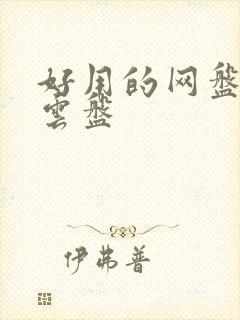 好用的网盘
雲盤
伊弗普